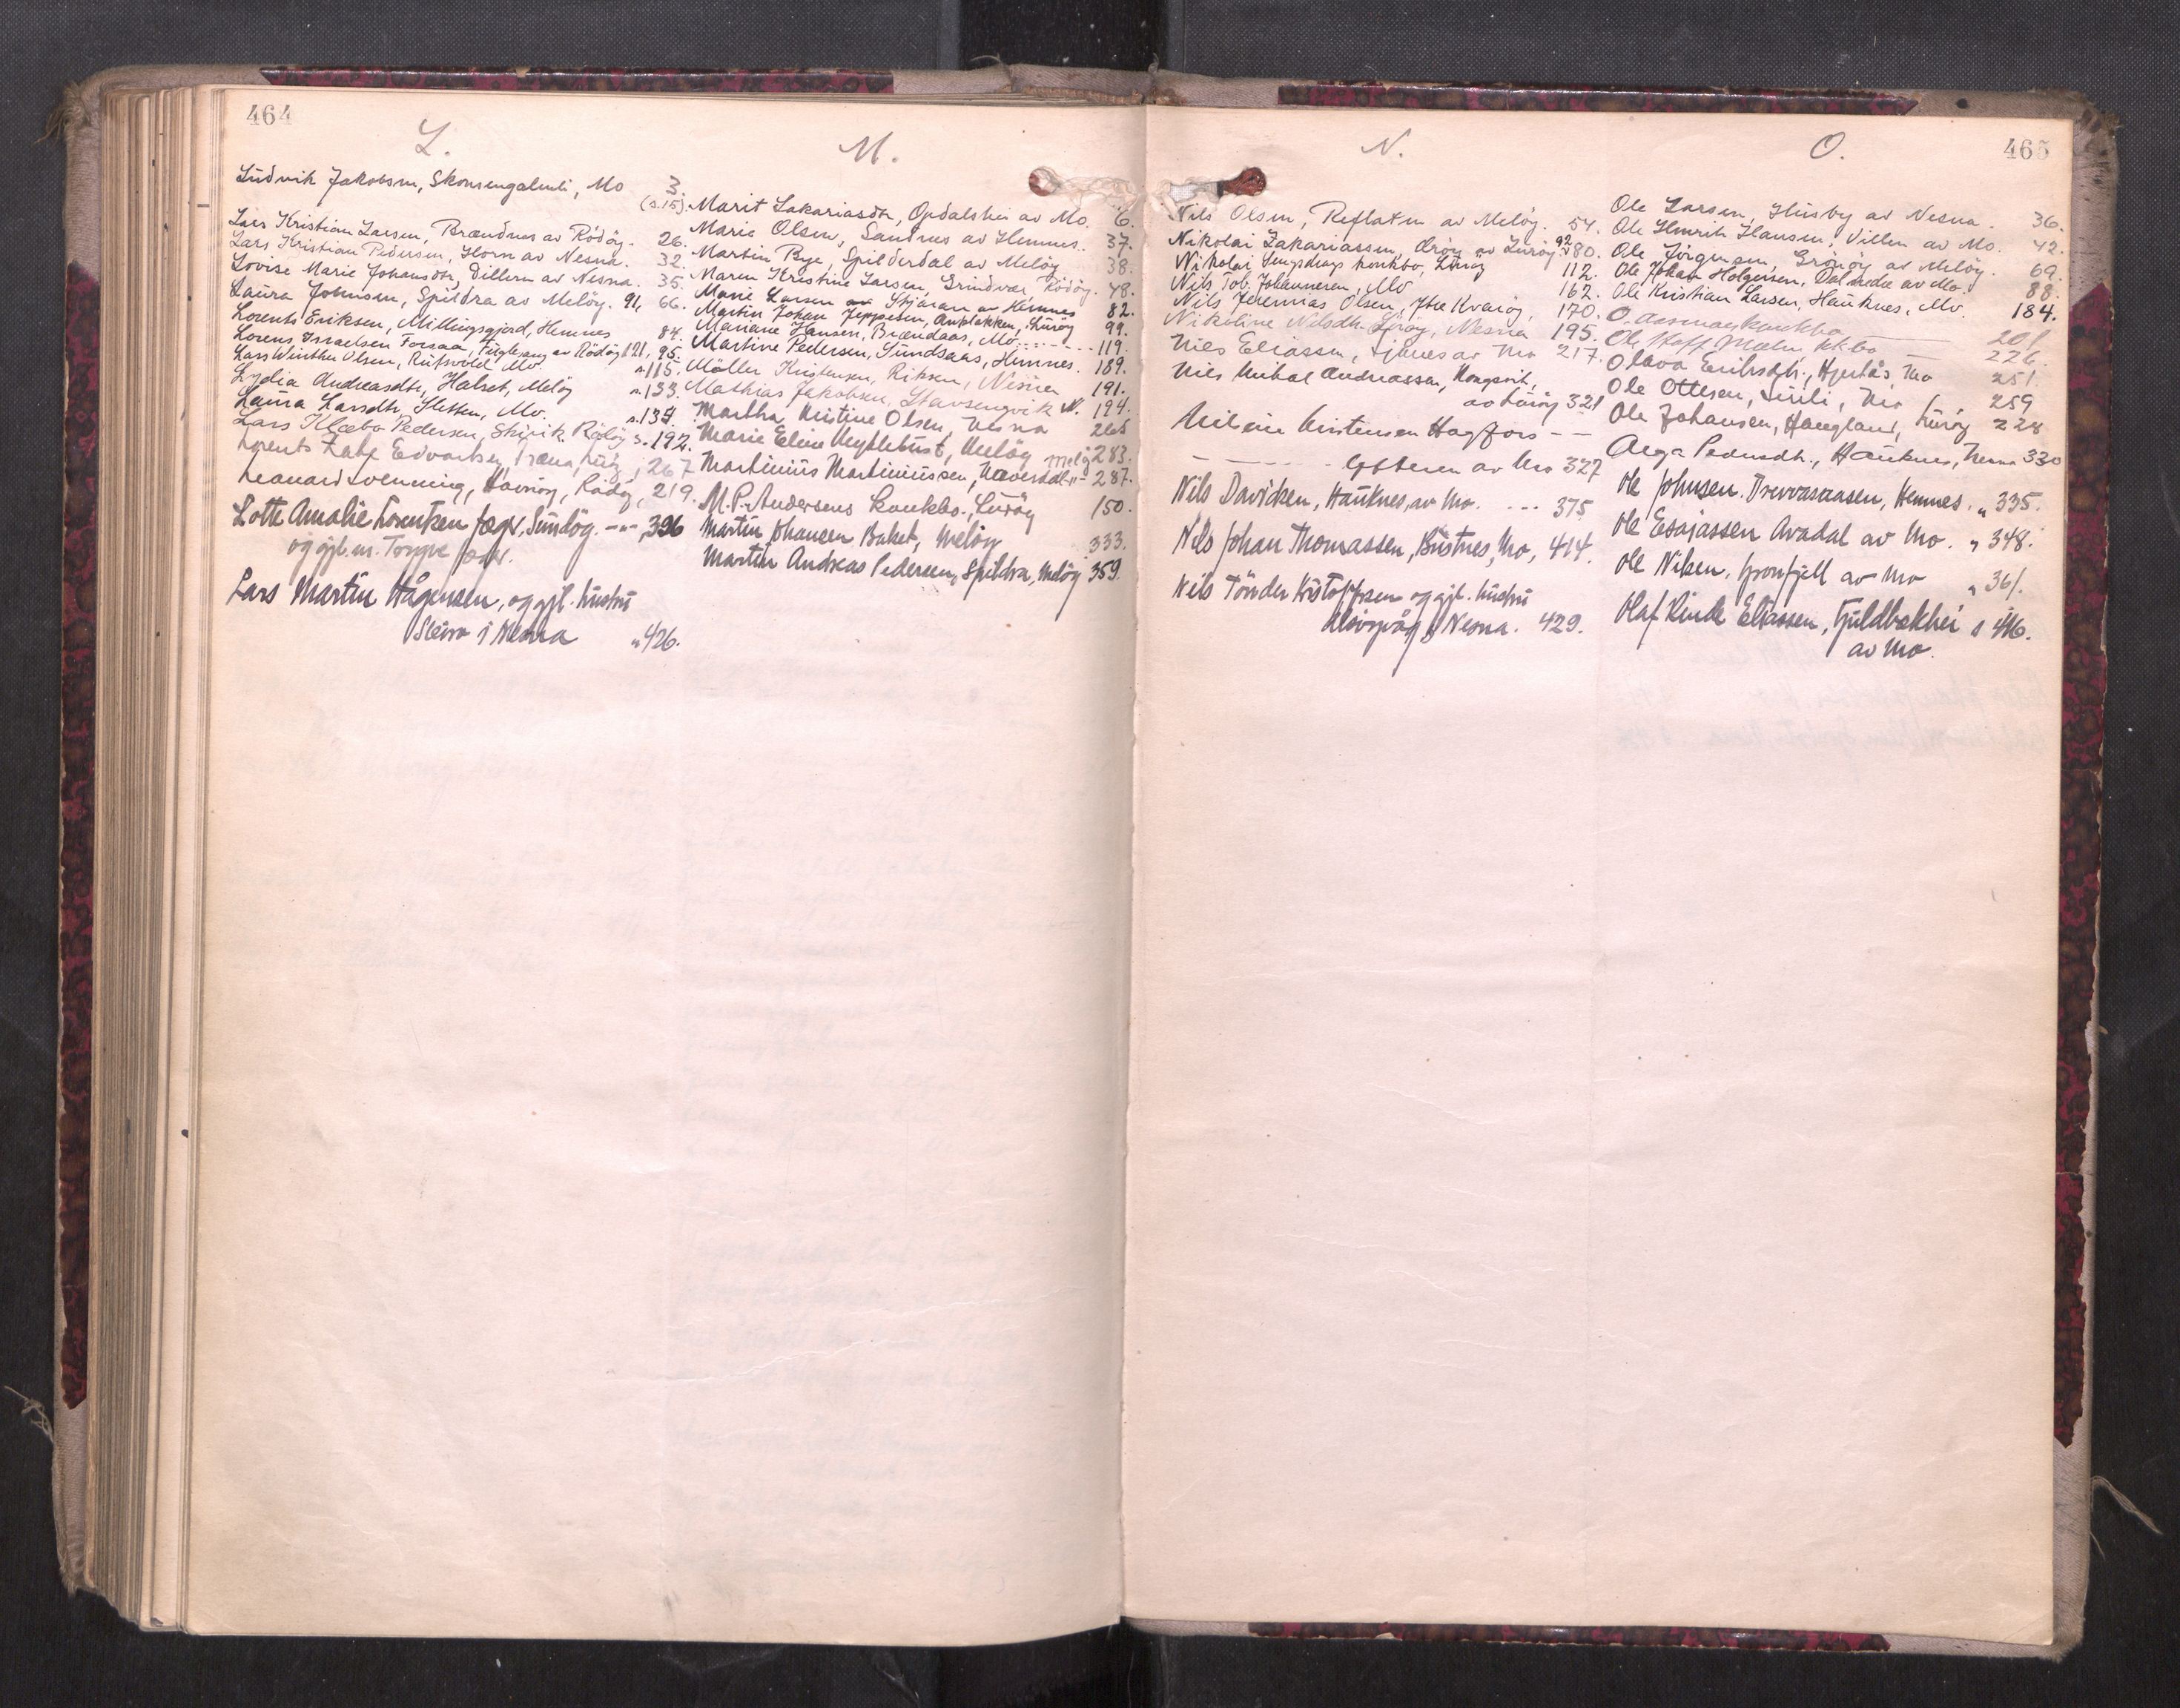 464
L.
Ludvik Jakobsen, Skonsengalmli, Mo 3.
(s.15).
Lars Kristian Larsen, Brændnes av Rödöy. 26.
Lars Kristian Pedersen, Horn av Nesna. 32.
Lovise Marie Johansdtr, Dillern av Nesna. 35.
Laura Johnsen, Spildra av Melöy. 91, 66.
Lorents Eriksen, Millingsgjord, Hemnes 84.
Lorens Israelsen Forsaa, Fuglevang av Rödöy 121, 95.
Lars Winther Olsen, Rutsvold, Mo. s. 115.
Lydia Andreasdtr, Halset, Melöy s. 133.
Laura Larsdtr, Sletten, Mo. s. 134.
Lars Klæbo Pedersen, Skivik, Rödöy s. 192.
Lorents Edvartsen, Træna, Luröy, 267
Leonard Lvenning, Havröy, Rödöy, 219.
Lotte Amalie Lorentsen, Sundöy. -"- 396
og gjl. m.
Lars Martin Hågensen, og gjl. hustru
Steiro i Nesna " 426.
M.
Marit Sakariasdtr, Opdalshei av Mo. 6.
Marie Olsen, Sandnes av Hemnes. 37.
Martin Bye, Spilderdal av Melöy 38.
Maren Kristine Larsen, Grindvær, Rödöy. 48.
Marie Larsen av Stjáran av Hemnes 82.
Martin Johan Jeppesen, Anklakken, Luröy 99.
Mariane Hansen, Brændaas, Mo. 119.
Martine Pedersen, Sundsaas, Hemnes. 189.
Möller Kristensen, Riksen, Nesna 191.
Mathias Jakobsen, Stavsengvik N. 194.
Martha Kristine Olsen, Nesna 265
Marie Eline Neyplebust, Melöy 283.
Martinius Martiniussen, Næverdal -"- 287.
M. P. Andersens konkbo., Luröy 150.
Martin Johansen Baket, Melöy 333.
Martin Andreas Pedersen, Spildra, Melöy 359.
465
N.
Nils Olsen, Reflaten av Melöy. 54.
Nikolai Zakariassen, Oröy av Luröy 92 80.
Nikolai konkbo, Luröy 112.
Nils Tob. Johannesen, Mo 162.
Nils Jeremias Olsen, Ytre Kvaröy, 170.
Nikoline Nilsdtr. Löröy, Nesna 195.
Nils Eliassen, av Mo 217.
Nils Mikal Andreassen, Kongsvik,
av Luröy 321
Nilsine Kristensen Hagfors - -
av Mo 327
Nils Davidsen, Hauknes, av Mo. - - - 375
Nils Johan Thomassen, Bustnes, Mo, 414.
Nils Tönder Kristoffersen og gjl. hustru
Alsvigvåg i Nesna. 429.
O.
Ole Larsen, Husby av Nesna. 36.
Ole Henrik Hansen, Villen av Mo. 42.
Ole Jörgensen, Grönöy av Melöy. 69.
Ole Johan Holgersen, Dalselie av Mo. 88.
Ole Kristian Larsen, Hauknes, Mo. 184.
O. Aasmoes konkbo 201
Ole Hoff Mælen kk.bo 226.
Olava Eriksdtr., Hjertås, Mo 251.
Ole Ottesen, Liuli, Mo 259
Ole Johansen, Haugland, Luröy 228
Olga Pedersdtr., Hauknes, Nesna 330
Ole Johnsen. Drevvasaasen, Hemnes. " 335.
Ole Esajassen Avadal av Mo. " 348.
Ole Nilsen, Grönfjell av Mo " 361.
Olaf Rinde Eliassen, Fjuldbakhei s 446.
av Mo.